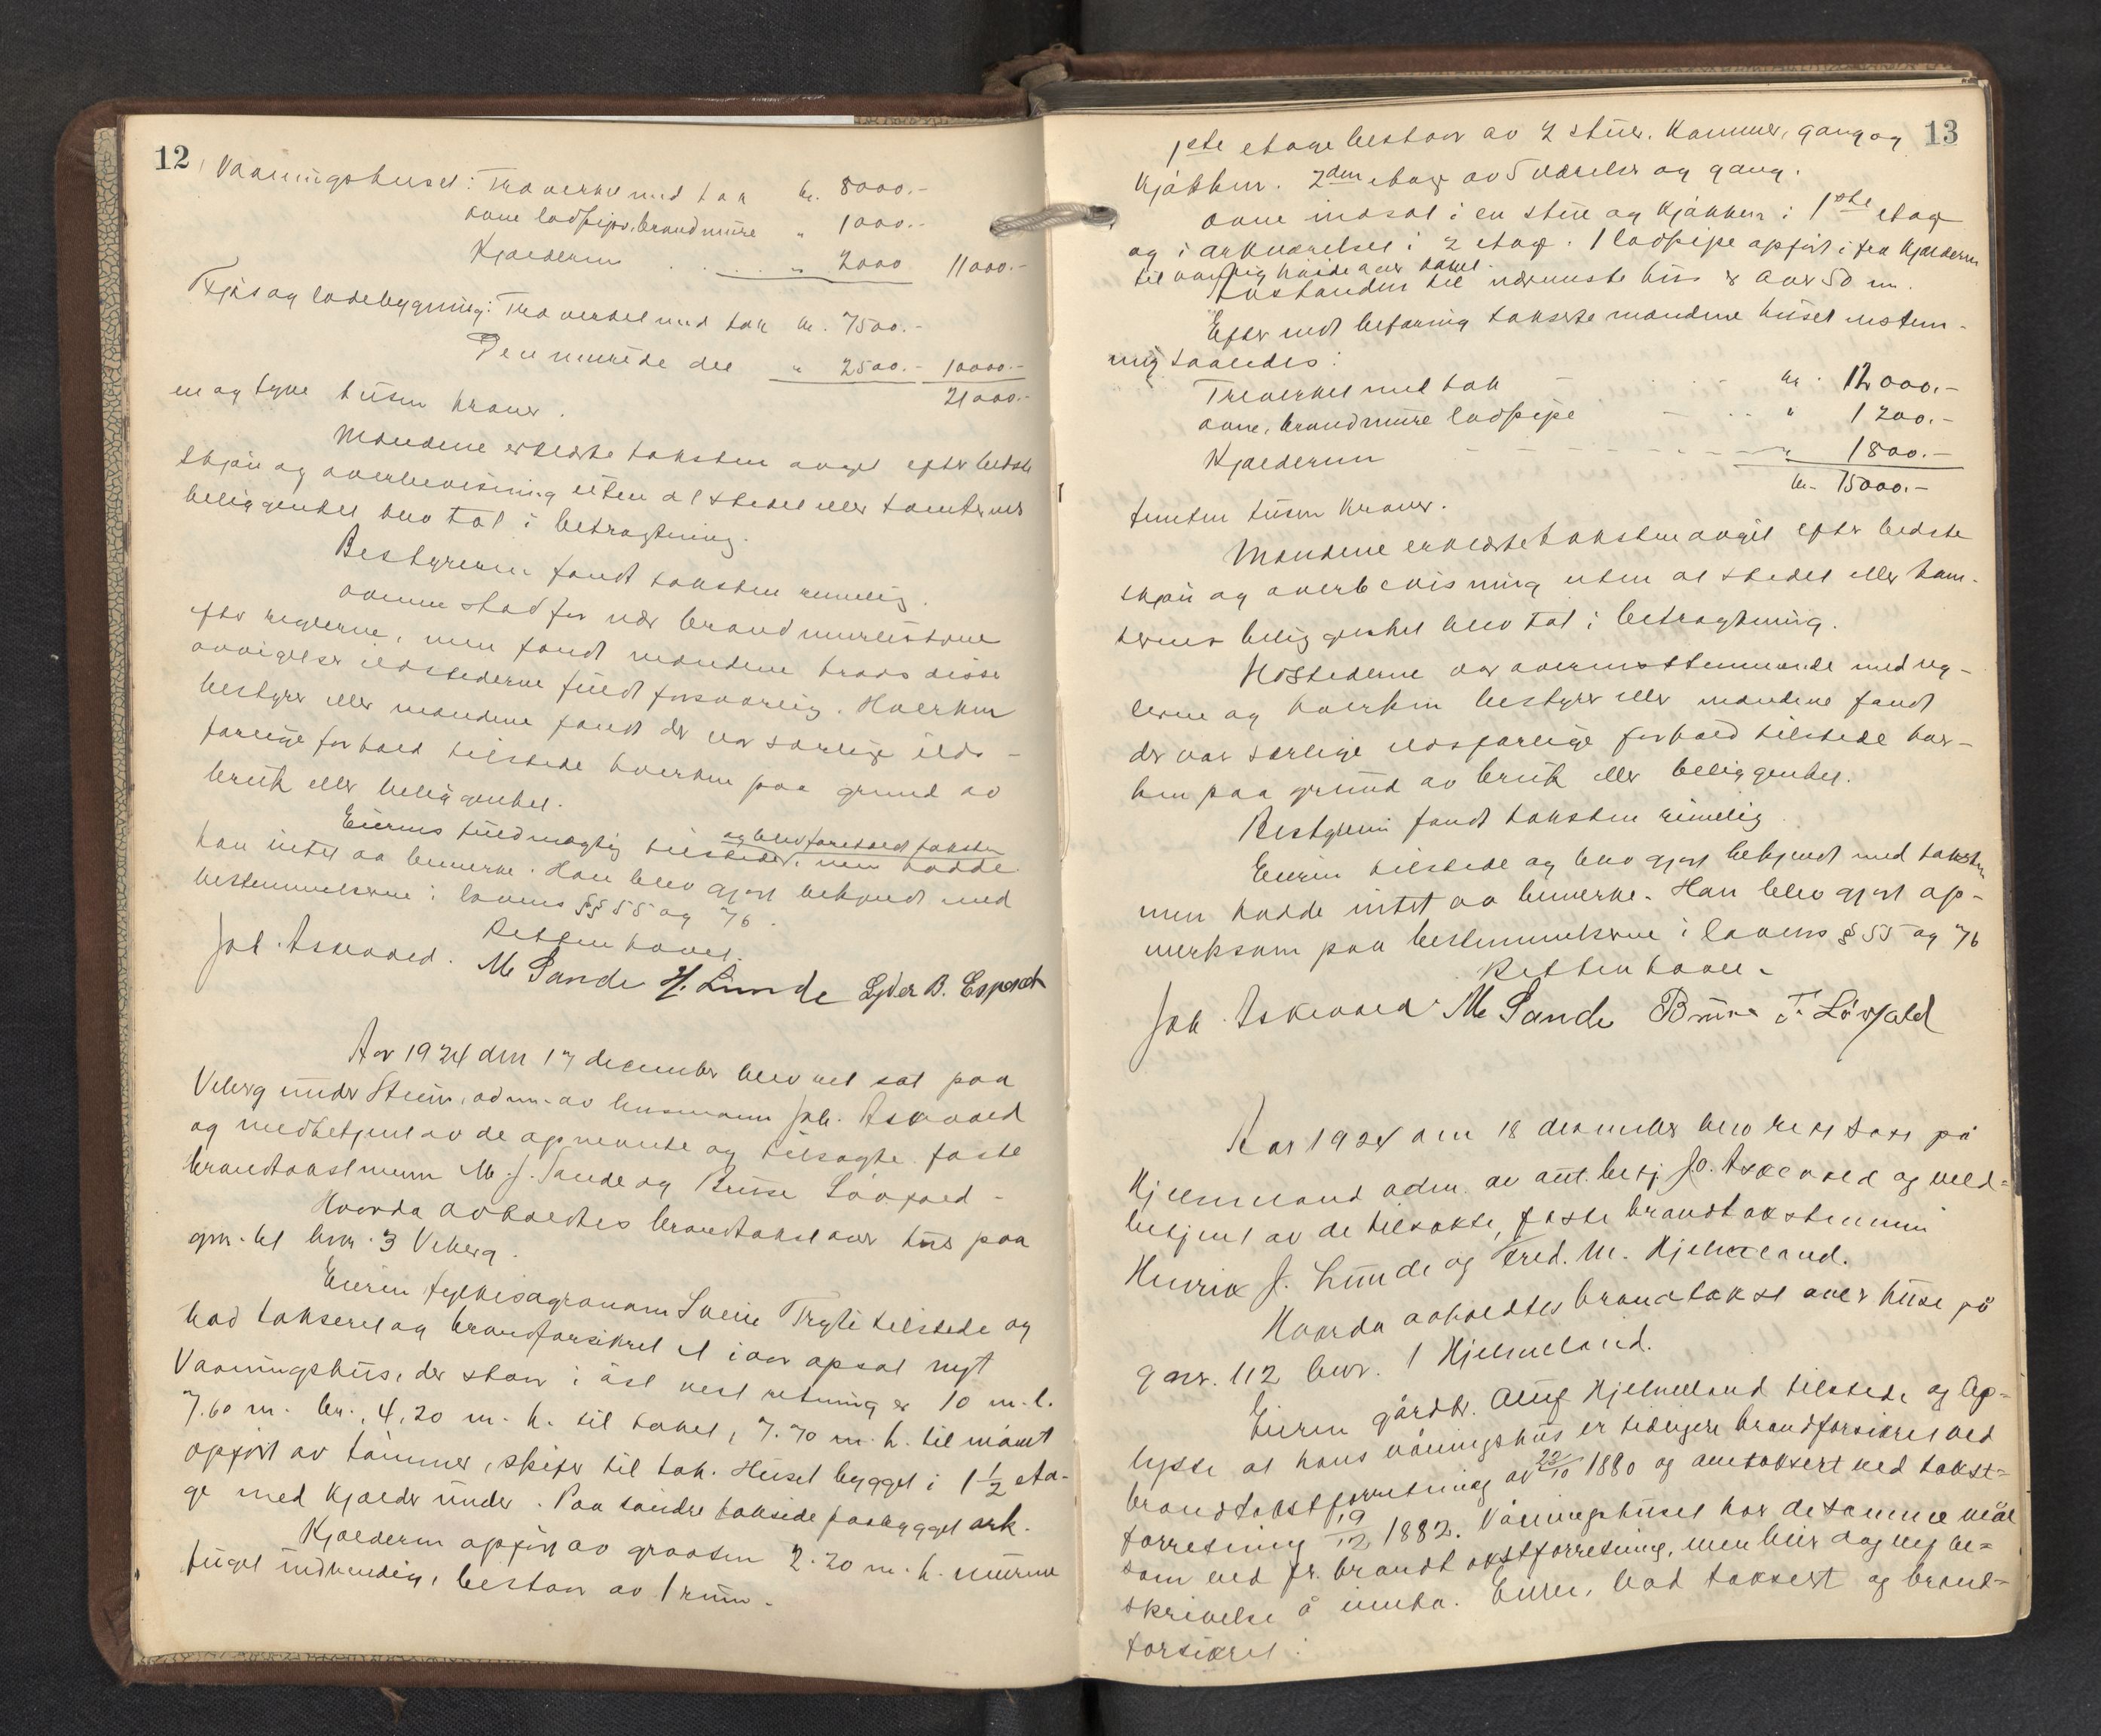 12
Vaaningshuset: Træverket med tak kr. 8000.-
ovne ladpipe, brandmure " 1000.-
Kjælderen " 2000 11000.-
Fjøs og ladebygning: Træverket med tak kr. 7500.-
Den murede del " 2500.- 10000.-
en og tyve tusen kroner. 21000.-
Mændene erklærte taksten avgit efter bedste
skjøn og overbevisning uten at stedet eller tomternes
beliggenhet blev tat i betragtning.
Bestyreren fandt taksten rimelig.
ovnene stod for nær brandmurene
efter reglerne, men fandt mændene trods disse
avvigelser ildstederne fuldt forsvarlig. Hverken
bestyrer eller mændene fandt der var særlige ilds-
farlige forhold tilstede hverken paa grund av
bruk eller beliggenhet.
og blev foreholdt taksten
Eierens fuldmægtig tilstede, men hadde
han intet at bemerke. Han blev gjort bekjendt med
bestemmelserne i lovens §§ 55 og 76.
Retten hævet.
Joh. Askvold. M Sande H. Lunde Gjer B. Espeset
Aar 1924 den 17 december blev ret sat paa
Veberg under Steim, adm. av lensmann Joh. Askvold
og medbetjent av de opnevnte og tilsagte faste
brandtakstmenn M. J. Sande og Brune Løvfald -
Hvorda avholdtes brandtakst over hus paa
gnr. 61 bnr. 3 Veberg.
Eieren fylkesagronom Svein Tryti tilstede og
bad taksert og brandforsikret et iaar opsat nyt
Vaaningshus, der staar i øst vest retning er 10 m. l.
7.60 m. br., 4,20 m. h. til taket, 7.70 m. h. til mønet
opført av tømmer, skifer til tak. Huset bygget i 1 1/2 eta-
ge med Kjælder under. Paa søndre takside paabygget ark.
Kjælderen opført av graasten 2.20 m. h. murene
fuget indvendig, bestaar av 1 rum.
13
1ste etage bestaar av 2 stuer, Kammer, gang og
Kjøkken. 2den etage av 5 værelser og gang.
ovne indsat i en stue og Kjøkken i 1ste etage
og i arkværelset i 2 etage. 1 ladpipe opført i fra Kjælderen
til vanlig høide over taket.
Avstanden til nærmeste hus er over 50 m.
Efter endt befaring takserte mændene huset enstem-
mig saaledes:
Træverket med tak kr. 12000.-
ovne, brandmure ladpipe " 1200.-
Kjælderen " 1800.-
kr. 15000.-
femten tusen Kroner.
Mændene erklærte taksten avgit efter bedste
skjøn og overbevisning uten at stedet eller tom-
ternes beliggenhet blev tat i betragtning.
Ildstederne var overensstemmende med reg-
lerne og hverken bestyrer eller mændene fandt
der var særlige ildsfarlige forhold tilstede hver-
ken paa grund av bruk eller beliggenhet.
Bestyreren fandt taksten rimelig
Eieren tilstede og blev gjort bekjendt med taksten
men hadde intet at bemerke. Han blev gjort op-
merksom paa bestemmelserne i lovens § 55 og 76
Retten hævet.
Joh. Askvold M Sande Brune T. Løvfald
Aar 1924 den 18 december blev rett satt på
Hjelmeland adm. av aut. betj. Jo. Askevold og med-
betjent av de tilsakte, faste brandtakstmenn
Henrik J. Lunde og Fred. M. Hjelmeland.
Hvorda avholdtes brandtakst over huse på
gnr. 112 bnr. 1 Hjelmeland.
Eieren gårdbr. Oluf Hjelmeland tilstede og op-
lyste at hans våningshus er tidligere brandforsikret ved
brandtakstforretning av 23/10 1880 og omtaksert ved takst-
forretning 19/12 1882. Våningshuset har de samme mål
som ved fr. brandtakstforretning, men blir dog ny be-
skrivelse å innta. Eieren bad taksert og brand-
forsikret: